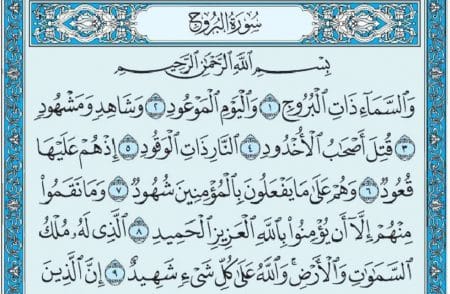 سُورَةُ البُرُوجِ
بِسْمِ ٱللَّهِ ٱلرَّحْمَٰنِ ٱلرَّحِيمِ
وَٱلسَّمَآءِ ذَاتِ ٱلْبُرُوجِ ١ وَٱلْيَوْمِ ٱلْمَوْعُودِ ٢ وَشَاهِدٍ وَمَشْهُودٍ
٣ قُتِلَ أَصْحَٰبُ ٱلْأُخْدُودِ ٤ ٱلنَّارِ ذَاتِ ٱلْوَقُودِ ٥ إِذْ هُمْ عَلَيْهَا
قُعُودٌ ٦ وَهُمْ عَلَىٰ مَا يَفْعَلُونَ بِٱلْمُؤْمِنِينَ شُهُودٌ ٧ وَمَا نَقَمُوا۟
مِنْهُمْ إِلَّآ أَن يُؤْمِنُوا۟ بِٱللَّهِ ٱلْعَزِيزِ ٱلْحَمِيدِ ٨ ٱلَّذِى لَهُۥ مُلْكُ
ٱلسَّمَٰوَٰتِ وَٱلْأَرْضِ ۚ وَٱللَّهُ عَلَىٰ كُلِّ شَىْءٍ شَهِيدٌ ٩ إِنَّ ٱلَّذِينَ